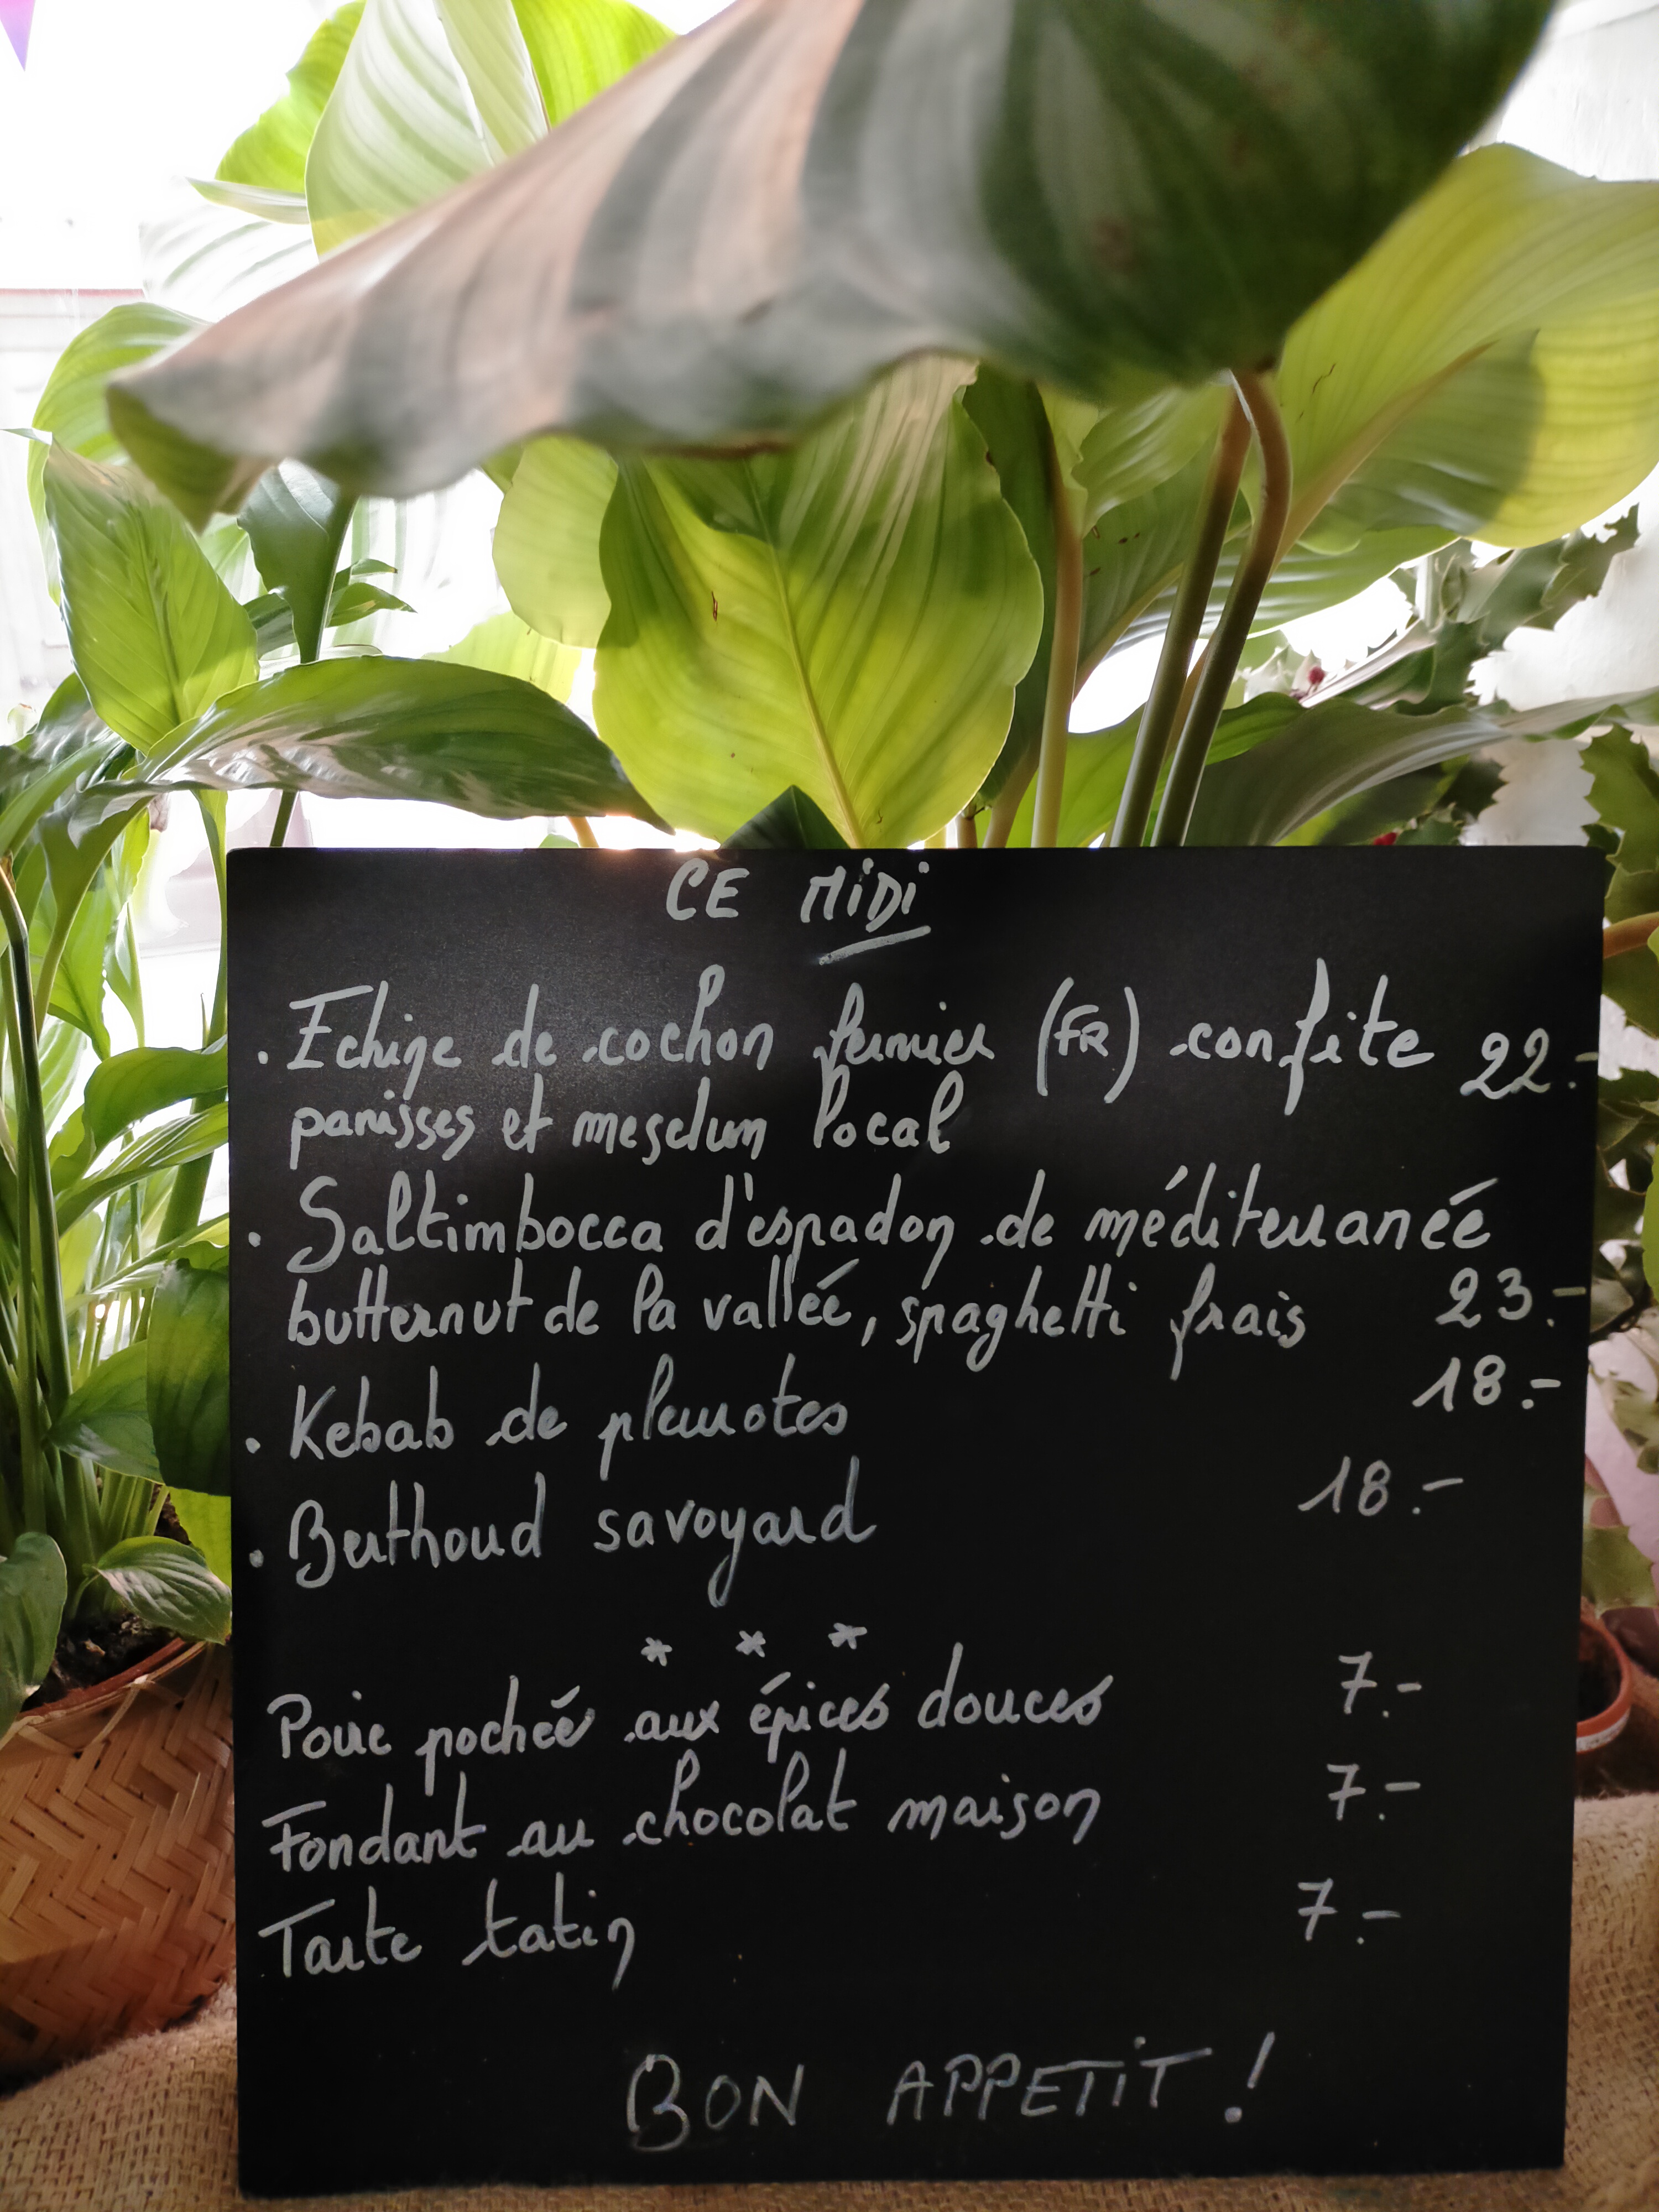 CE MiDi
. Echine de cochon fermier (FR) confite 22.-
panisses et mesclun local
. Saltimbocca d'espadon de méditerranée
butternut de la vallée, spaghetti frais 23.-
. Kebab de pleurotes 18.-
. Berthoud savoyard 18.-
* * *
Poire pochée aux épices douces 7.-
Fondant au chocolat maison 7.-
Tarte tatin 7.-
BON APPETiT !